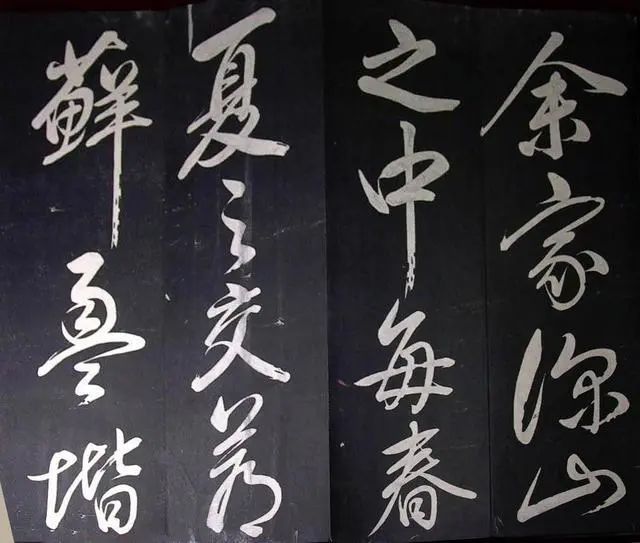 余家深山
之中每春
夏之交蒼
蘚盈堦